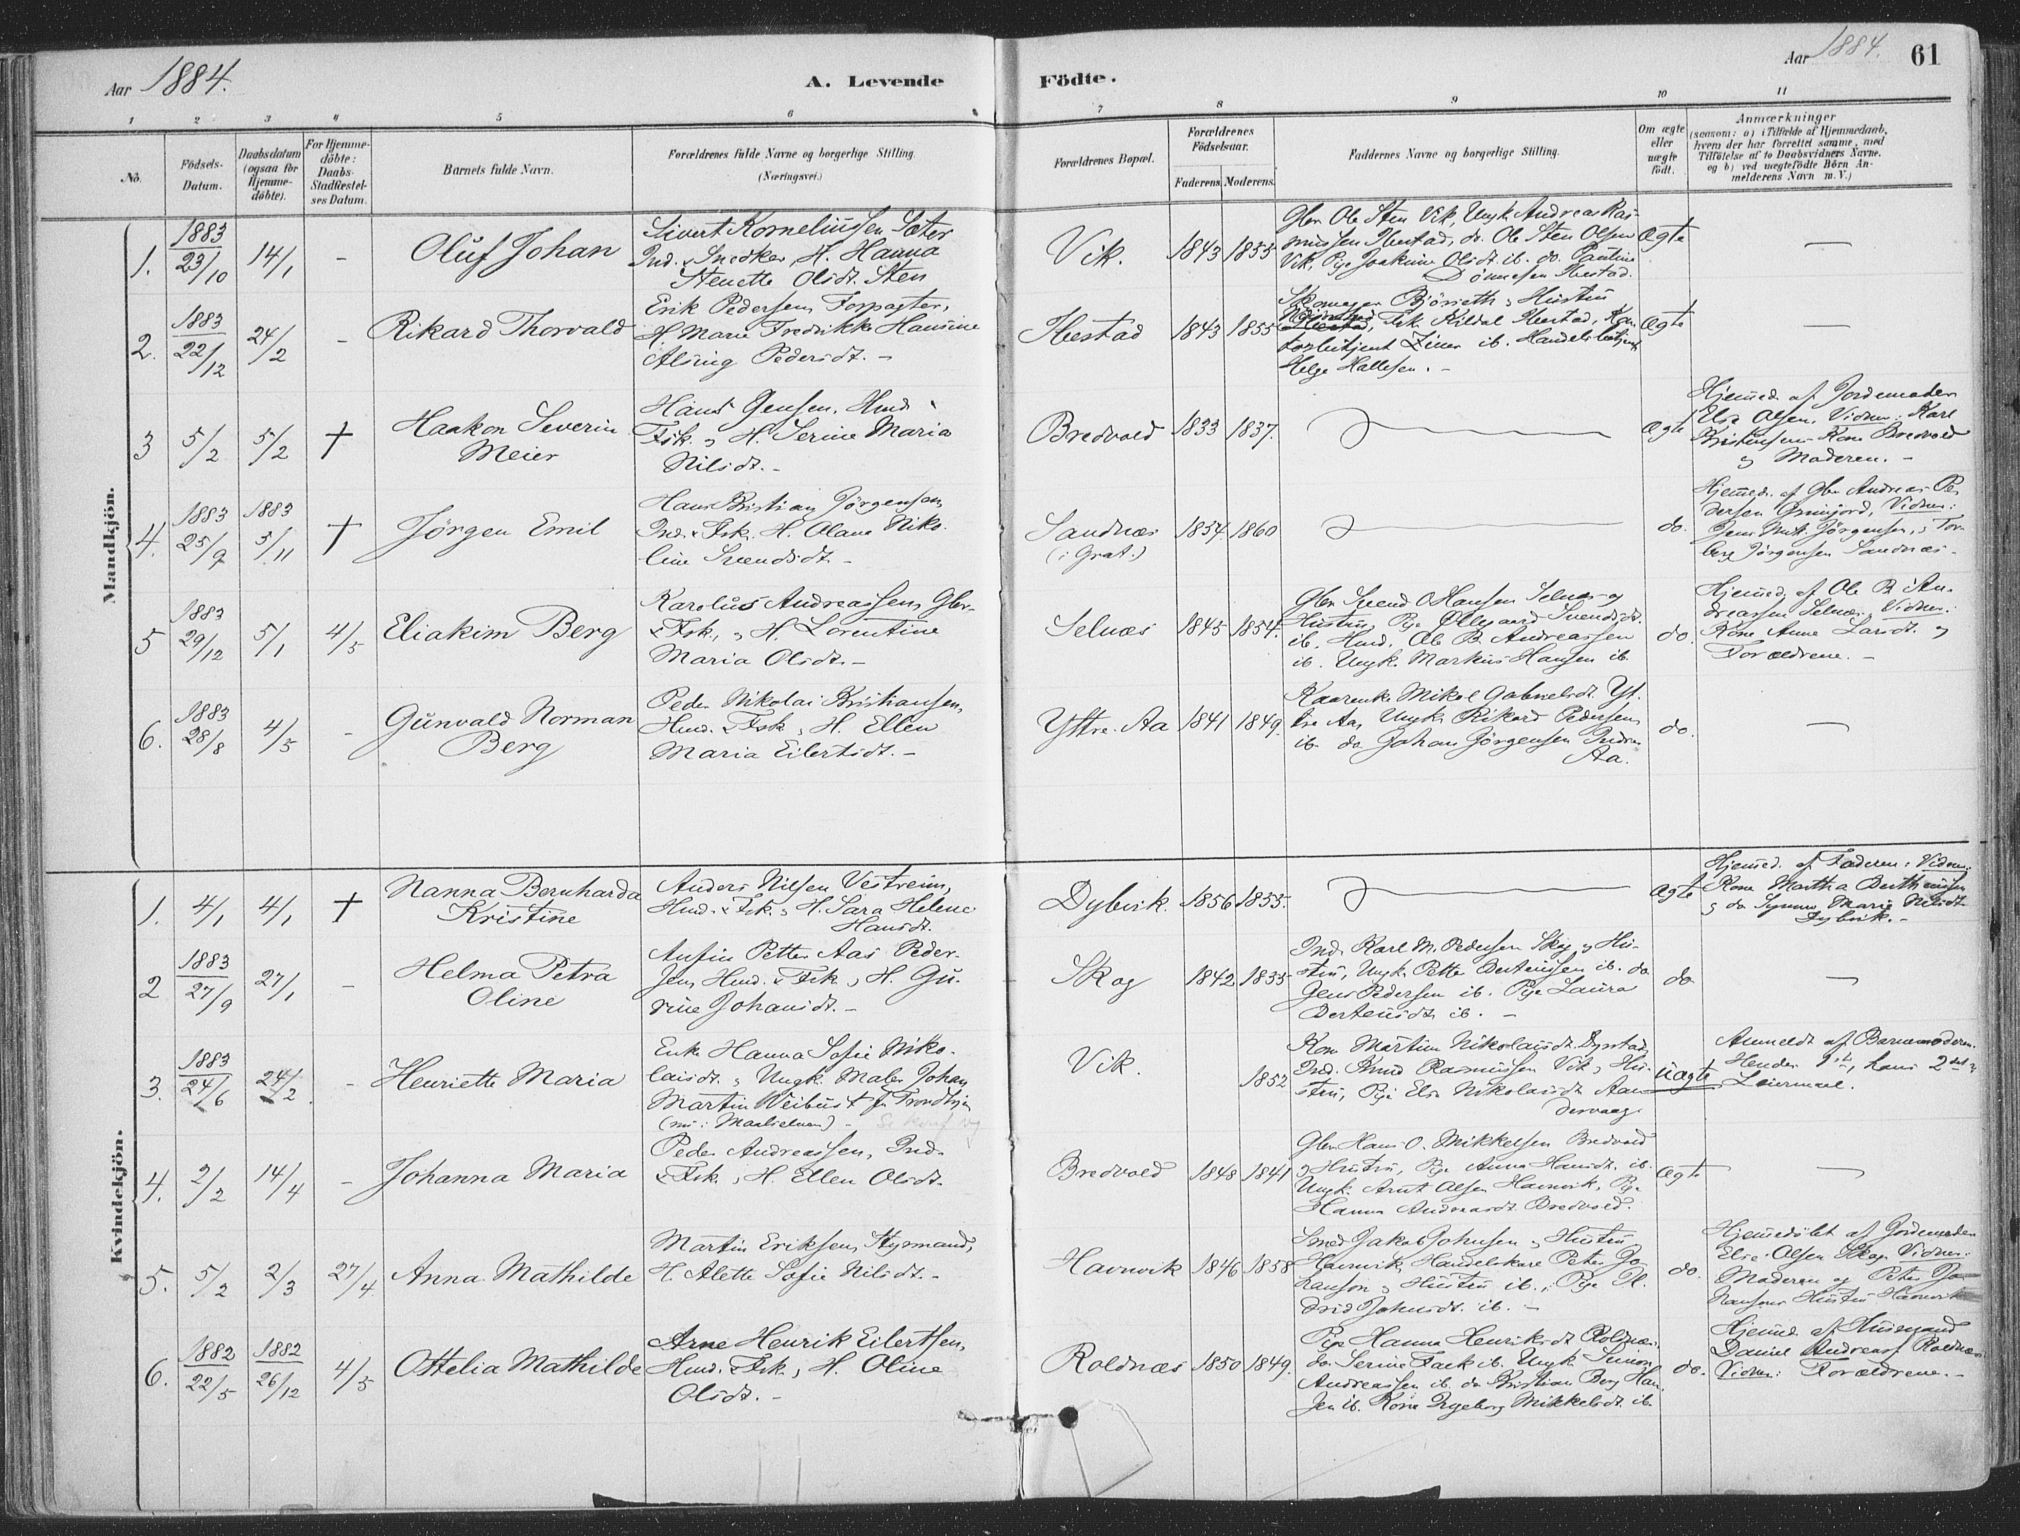 Aar 1884.
A. Levende Födte.
Aar 1884. 61
1 2 3 4 5 6 7 8 9 10 11
No.
Födsels-
Datum.
Daabsdatum
(ogsaa för
Hjemme-
döbte).
For Hjemme-
döbte:
Daabs-
Stadfæstel-
ses Datum.
Barnets fulde Navn.
Forældrenes fulde Navne og borgerlige Stilling.
(Næringsvei.)
Forældrenes Bopæl.
Forældrenes
Födselsaar.
Faderens. Moderens.
Faddernes Navne og borgerlige Stilling.
Om ægte
eller
uægte
födt.
Anmærkninger
(saasom: a) i Tilfælde af Hjemmedaab,
hvem der har forrettet samme, med
Tilföielse af to Daabsvidners Navne,
og b) ved uægtefödte Börn An-
melderens Navn m. V.)
Mandkjön.
1. 1883 23/10 14/1 - Oluf Johan
Sivert Korneliussen Sæter
Ind. & Snedker, H. Hanna
Stenette Olsdt. Sten
Vik. 1843 1855
Gbr Ole Sten Vik, Ungk Andreas Ras-
mussen Ibestad, do. Ole Sten Olsen
Vik, Pige Joakime Olsdt. ib. do. Pauline
Dönnesen Ibestad.
Ægte —
2. 1883 22/12 24/2 - Rikard Thorvald
Erik Pedersen, Forpagter,
H. Marie Fredrikke Hansine
Alsing Pedersdt. -
Ibestad 1843 1855
Skomager Bjørseth & Hustru
Ibestad, Fsk. Kildal Ibestad, Kon
torbetjent Finer ib. Handelsbetjent
Helge Hallesen. -
Ægte —
3 5/2 5/2 † Haakon Severin
Meier
Hans Jensen, Hmd
Fsk. & H. Serine Maria
Nilsdt. -
Bredvold 1833 1837.
Ægte
Hjemmed. af Jordemoder
Else Olsen, Vidner: Karl
Kristensens Kone Bredvold
og Moderen. -
4. 1883 25/9 1883 5/11 † Jörgen Emil
Hans Kristian Jörgensen,
Ind. & Fsk. H. Olana Niko-
line Svendsdt. -
Sandnæs
(i Grat.)
1854 1860
do.
Hjemmed. af Gbr Andreas Pe
dersen Grovfjord, Vidner:
Jens Mitt. Jörgensen, & Tor-
berg Jörgensen Sandnæs -
5 1883 29/12 5/1 4/5 Eliakim Berg
Karolus Andreassen, Gbr.
& Fsk., & H. Lorentine
Maria Olsdt. -
Selnæs 1845 1854.
Gbr Svend O Hansen Selnæs og
Hustru, Pige Ollegaard Svendsdt.
ib. Hmd. Ole B. Andreassen
ib. Ungk. Markus Hansen ib.
do.
Hjemmed. af Ole B. An-
dreassen Selnæs, Vidner:
Kone Anne Larsdt. og
Forældrene. -
6. 1883 28/8 4/5 - Gunvald Norman
Berg
Peder Nikolai Kristiansen,
Hmd. & Fsk., H. Ellen
Maria Eilertsdt. -
Yttre. Aa 1841 1849.
Kaarenke Mikal Gabrielsdt. Yt-
tre Aa, Ungk. Rikard Pedersen
ib. do Johan Jörgensen Indre
Aa.
do. —
Kvindekjön.
1. 4/1 4/1 † Nanna Bernharda
Kristine
Anders Nilsen Vestreim,
Hmd. & Fsk. & H. Sara Helene
Hansdt.
Dybvik. 1856 1855.
Ægte
Hjemmed. af Faderen: Vidner:
Kone Martha Bertheusen
& do Synnøv Marie Nilsdt.
Dybvik. -
2 1883 27/9 27/1 - Helma Petra
Oline
Anfin Petter Aas Peder-
sen, Hmd. & Fsk., H. Gu-
rine Johansdt. -
Skog 1842 1835
Ind. Karl M. Pedersen Skog & Hu-
stru, Ungk. Petter Berteussen ib. do
Jens Pedersen ib. Pige Laura
Berteusdt. ib. -
do —
3. 1883 24/6 24/2 - Henriette Maria
Enke Hanna Sofie Niko-
laisdt. & Ungk. Maler Johan
Martin Weibust fra Trondhjem
(nu: Maalselven) -
Vik. 1852
Kone Martine Nikolaisdt. Dyrstad.
Ind. Knud Rasmussen Vik, Hu-
stru, Pige Else Nikolaisdt Aan
dervaag
uægte
Anmeldt af Barnemoderen.
Hendes 1ste, hans 2det
Leiermaal.
4. 2/2 14/4 - Johanna Maria
Peder Andreassen, Ind.
& Fsk., H. Ellen Olsdt.
Bredvold 1848 1841
Gbr Hans O. Mikkelsen Bredvold
& Hustru, Pige Anna Hansdt. ib.
Ungk. Arnt Olsen Havnvik, Pige
Hanna Andreasdt Bredvold.
Ægte —
5. 5/2 2/3 27/4 Anna Mathilde
Martin Eriksen, Styrmand,
H. Alette Sofie Nilsdt. -
Havnvik 1846 1858
Smed Jakob Johnsen & Hustru
Havnvik, Handelskar Peter Jo
hanson & Hustru ib., Pige M.
Johnsdt. ib. -
do.
Hjemmedöbt af Jordemoder
Else Olsen Skog Vidner:
Moderen og Peter Jo-
hansons Hustru Havnvik
6. 1882 22/5 1882 26/12 4/5 Ottelia Mathilde
Arne Henrik Eilertsen,
Hmd. & Fsk., H. Oline
Olsdt. -
Roldnæs 1850 1849.
Pige Hanna Henriksdt Roldnæs,
do. Serine Falk ib. Ungk. Simon
Andreassen ib. do Kristian Berg Han-
sen ib. Kone Ingeborg Mikkelsdt. ib.
do.
Hjemmed. af Husmand
Daniel Andreas. Roldnæs
Vidner: Forældrene. -